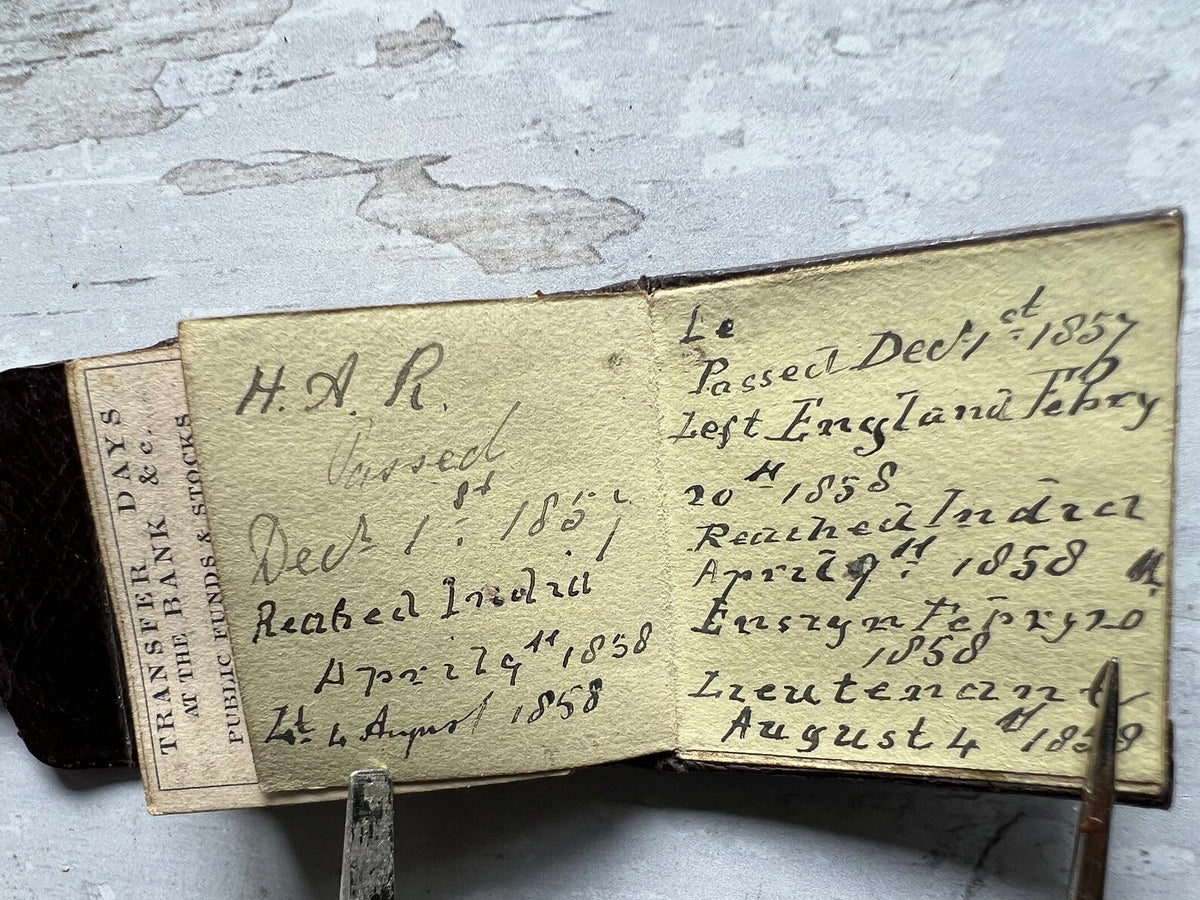 TRANSFER DAYS
AT THE BANK &c.
PUBLIC FUNDS & STOCKS
H. A. R.
Passed
Decr 1st 1857
Reached India
April 9th 1858
Lt. 4 August 1858
Le
Passed Decr 1st 1857
Left England Febry
20th 1858
Reached India
April 9th 1858
Ensign Febry 20
1858
Lieutenant
August 4th 1858